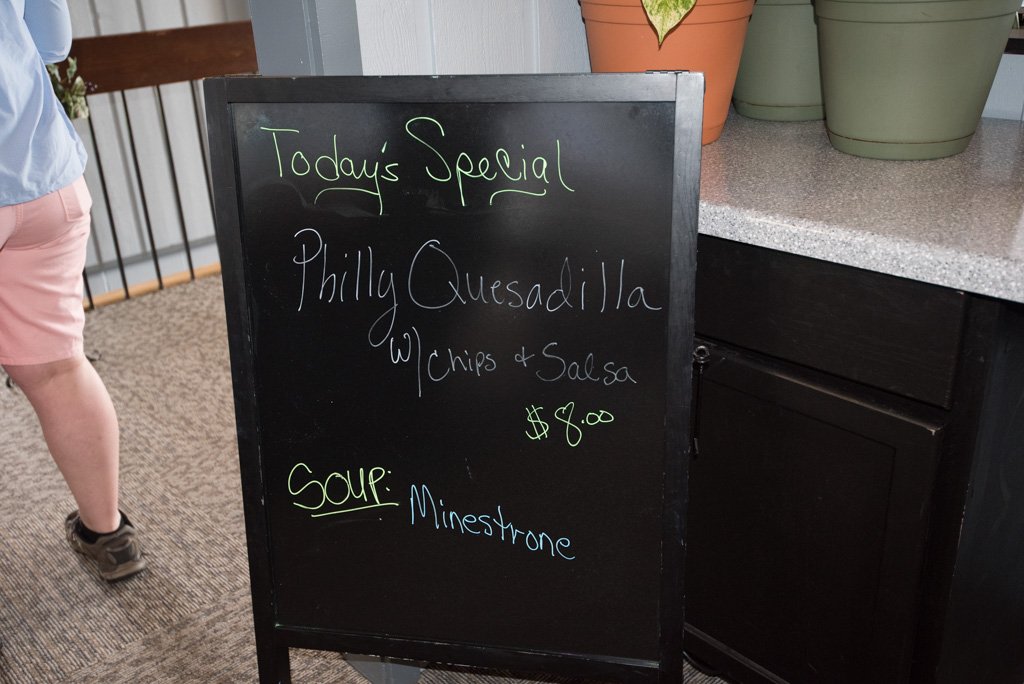 Today's Special
Philly Quesadilla
w/ chips + Salsa
$8.00
Soup: Minestrone